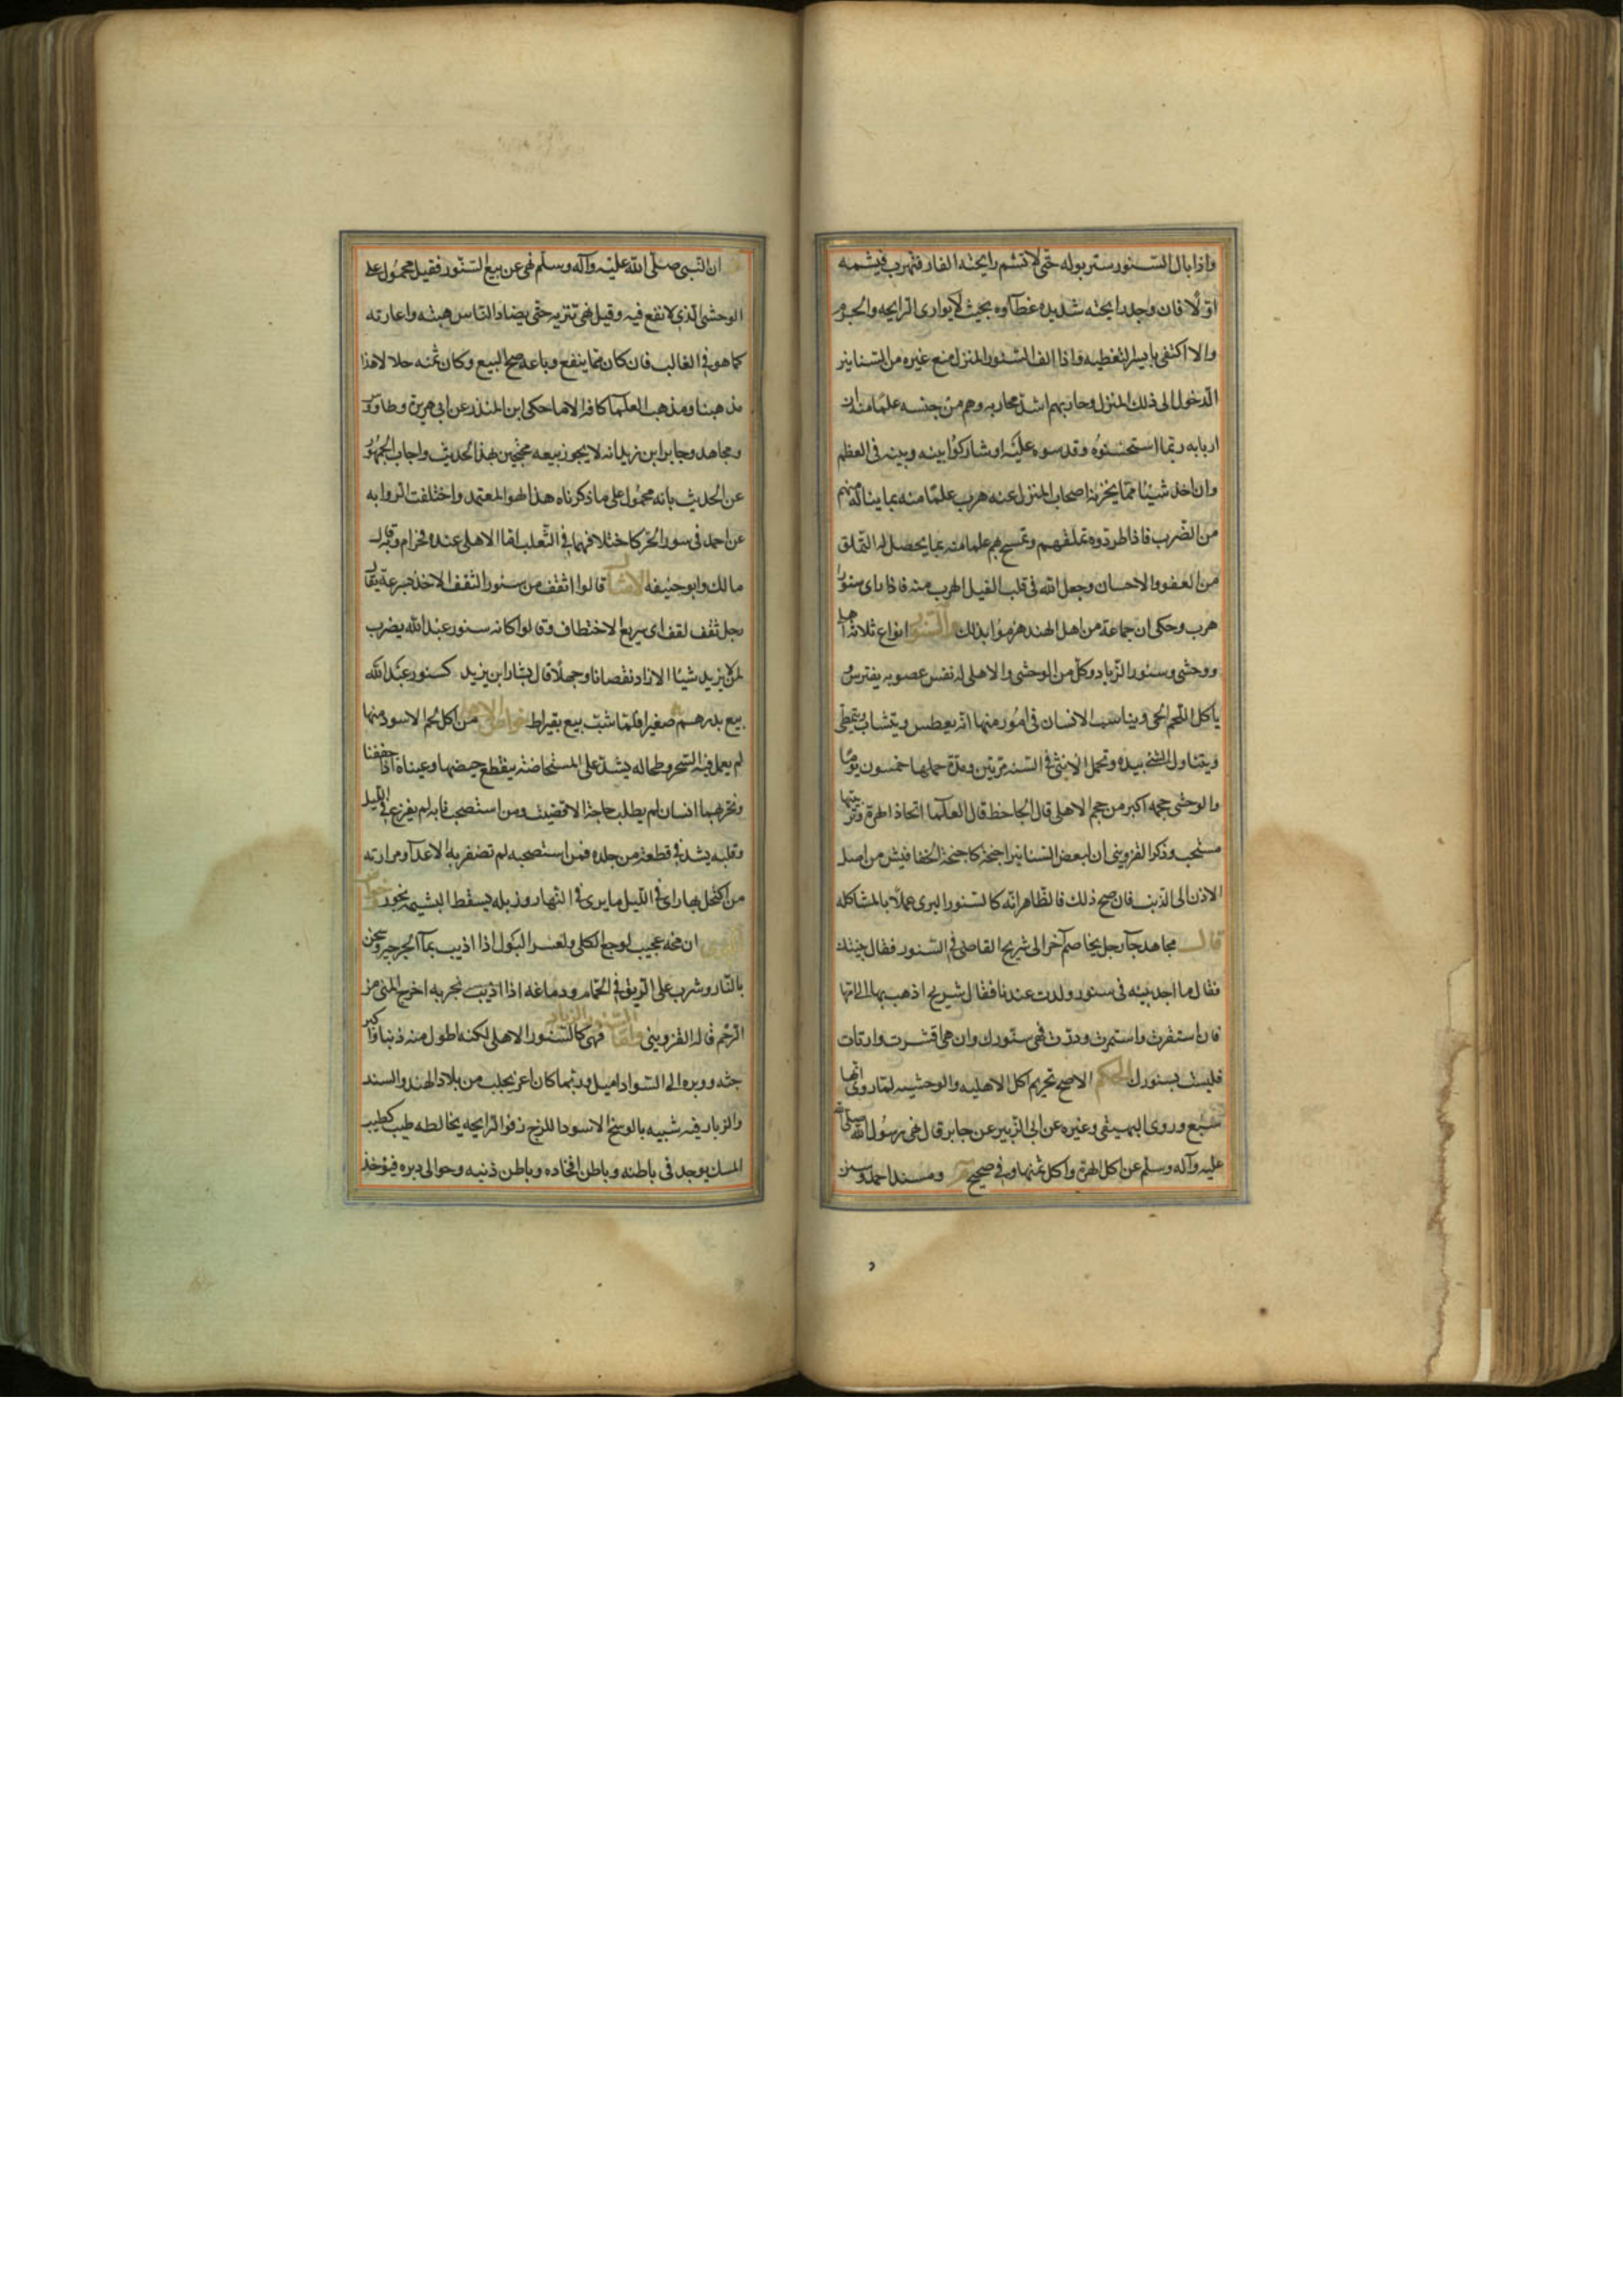 واذا بال السنور ستر بوله حتى لا تشم رايحته الفار فتهرب فيشمه
اولا فان وجد رايحته شديده غطآوه بحيث لا يوارى الرايحه والجرم
والا اكتفى بايسر التغطيه واذا الف السنور المنزل منع غيره من السنانير
الدخول الى ذلك المنزل وحاربهم اشد محاربه وهم من جنسه علما منه ان
اربابه ربما استحسنوه وقدموه عليه او شاركوا بينه وبينه فى العظم
وان اخذ شيئا مما يخزنه اصحاب المنزل عنه هرب علما منه بما يناله منهم
من الضرب فاذا طردوه تملقهم وتمسح بهم علما منه بما يحصل له التملق
من العفو والاحسان وجعل الله فى قلب الفيل الهرب منه فاذا راى سنورا
هرب وحكى ان جماعة من اهل الهند هزموا بذلك والسنور انواع ثلاثه اهلى
ووحشى وسنور الزباد وكل من الوحشى والاهلى له نفس عضوبه يفترس
ياكل اللحم الحى ويناسب الانسان فى امور منها انه يعطس ويتثاب ويتمطى
ويتناول الشئ بيده وتحمل الانثى فى السنه مرتين ومدة حملها خمسون يوما
والوحشى حجمه اكبر من حجم الاهلى قال الجاحظ قال العلمآ اتخاذ الهرة وتربيتها
مستحب وذكر القزوينى ان لبعض السنانير اجنحة كاجنحة الخفافيش من اصل
الاذن الى الذنب فان صح ذلك فالظاهر انه كالسنور البرى عملا بالمشاكله
قال مجاهد جآ رجل يخاصم آخر الى شريح القاضى فى السنور فقال بينتك
فقال ما اجد بينه فى سنور ولدت عندنا فقال شريح اذهب بها الى امها
فان استقرت واستمرت ودرت فهى سنورك وان هى اقشرت وارتات
فليست بسنورك الحكم الاصح تحريم اكل الاهليه والوحشيه لما روى انها
سبع وروى البيهقى وغيره عن ابى الزبير عن جابر قال نهى رسول الله صلى الله
عليه وآله وسلم عن اكل الهرة واكل ثمنها وفى صحيح ومسند احمد وسنن
ان النبى صلى الله عليه وآله وسلم نهى عن بيع السنور فقيل محمول على
الوحشى الذى لا نفع فيه وقيل نهى تنزيه حتى يضاد الناس هبته واعارته
كما هو فى الغالب فان كان مما ينفع وباعه صح البيع وكان ثمنه حلالا هذا
مذهبنا ومذهب العلمآ كافه الا ما حكى ابن المنذر عن ابى هريرة وطاوس
ومجاهد وجابر ابن زيد انه لا يجوز بيعه محتجين بهذا الحديث واجاب الجمهور
عن الحديث بانه محمول على ما ذكرناه هذا هو المعتمد واختلفت الروايه
عن احمد فى سنور البر كاختلافهما فى الثعلب اما الاهلى عنده فحرام وبه قال
مالك وابو حنيفه الامثال قالوا اثقف من سنور الثقف الاخذ بسرعة يقال
رجل ثقف لقف اى سريع الاختطاف وقالوا كانه سنور عبد الله يضرب
لمن لا يزيد شيئا الا زاد نقصانا وجهلا قال بشار ابن يزيد كسنور عبد الله
بيع بدرهم صغيرا فلما شب بيع بقيراط خواص الاهلى من اكل لحم الاسود منها
لم يعمل فيه السحر وطحاله يشد على المستحاضة ينقطع حيضها وعيناه اذا جففتا
وتخر بهما انسان لم يطلب حاجة الا قضيت ومن استصحب نابه لم يفزع فى الليل
وقلبه يشد فى قطعة من جلده فمن استصحبه لم تضفر به الاعدآ ومرارته
من اكتحل بها راى فى الليل ما يرى فى النهار وزبله يسقط المشيمه بخور
ان مخه عجيب لوجع الكلى ولعسر البول اذا اذيب بمآ الجرجير وسخن
بالنار وشرب على الريق فى الحمام ودماغه اذا اذيب تجربه اخرج المنى من
الرحم قاله القزوينى واما السنور الزباد فهى كالسنور الاهلى لكنه اطول منه ذنبا واكبر
جثه ووبره الى السواد اميل وربما كان اغر يجلب من بلاد الهند والسند
والزباد فيه شبيه بالوسخ الاسود اللزج زفر الرايحه يخالطه طيب كطيب
المسك يوجد فى باطنه وباطن افخاذه وباطن ذنبه وحوالى دبره فيوخذ